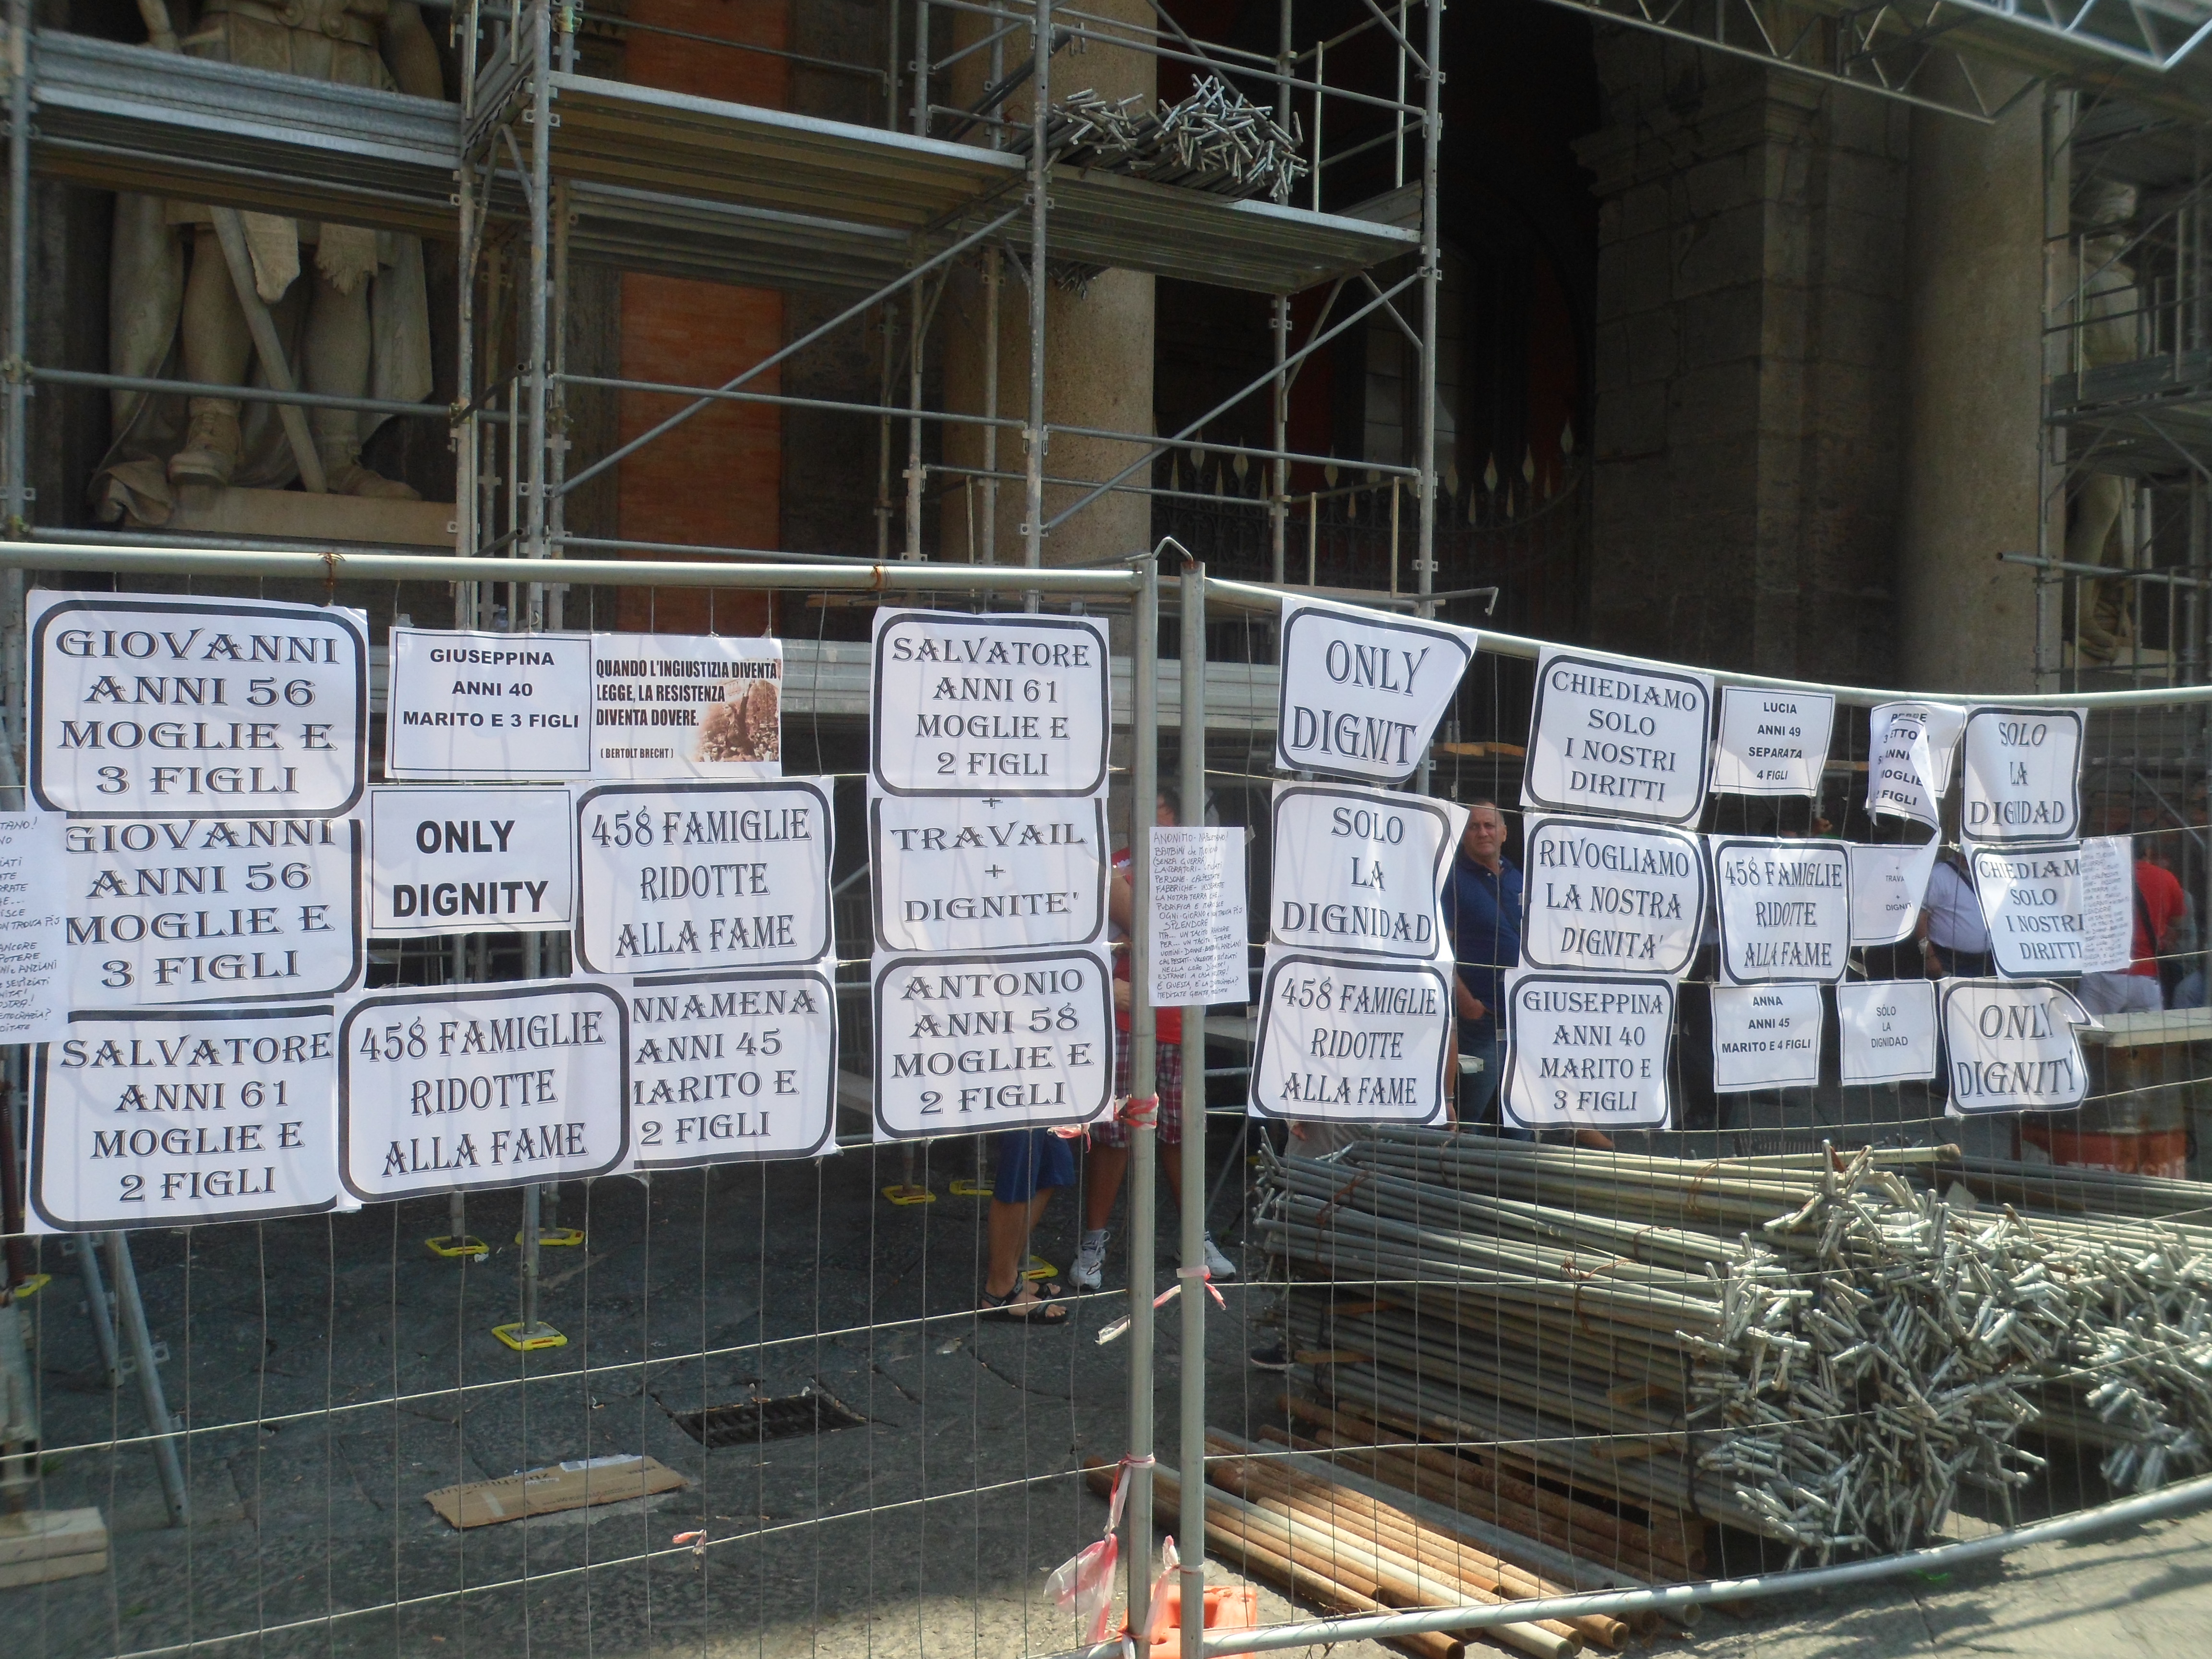 GIOVANNI
ANNI 56
MOGLIE E
3 FIGLI
GIUSEPPINA
ANNI 40
MARITO E 3 FIGLI
QUANDO L'INGIUSTIZIA DIVENTA
LEGGE, LA RESISTENZA
DIVENTA DOVERE.
( BERTOLT BRECHT )
SALVATORE
ANNI 61
MOGLIE E
2 FIGLI
GIOVANNI
ANNI 56
MOGLIE E
3 FIGLI
ONLY
DIGNITY
458 FAMIGLIE
RIDOTTE
ALLA FAME
+
TRAVAIL
+
DIGNITE'
SALVATORE
ANNI 61
MOGLIE E
2 FIGLI
458 FAMIGLIE
RIDOTTE
ALLA FAME
NNAMENA
ANNI 45
MARITO E
2 FIGLI
ANTONIO
ANNI 58
MOGLIE E
2 FIGLI
ONLY
DIGNIT
CHIEDIAMO
SOLO
I NOSTRI
DIRITTI
LUCIA
ANNI 49
SEPARATA
4 FIGLI
ANNI
MOGLIE
2 FIGLI
SOLO
LA
DIGIDAD
SOLO
LA
DIGNIDAD
RIVOGLIAMO
LA NOSTRA
DIGNITA'
458 FAMIGLIE
RIDOTTE
ALLA FAME
TRAVA
+
DIGNIT
CHIEDIAM
SOLO
I NOSTRI
DIRITTI
458 FAMIGLIE
RIDOTTE
ALLA FAME
GIUSEPPINA
ANNI 40
MARITO E
3 FIGLI
ANNA
ANNI 45
MARITO E 4 FIGLI
SÓLO
LA
DIGNIDAD
ONLY
DIGNITY